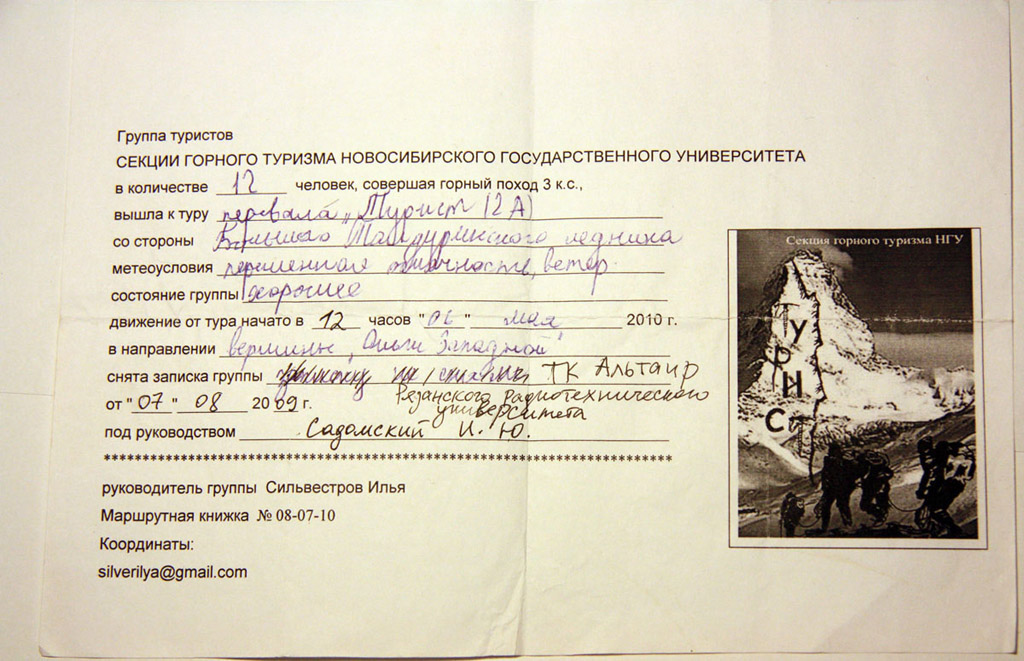 Группа туристов
СЕКЦИИ ГОРНОГО ТУРИЗМА НОВОСИБИРСКОГО ГОСУДАРСТВЕННОГО УНИВЕРСИТЕТА
в количестве 12 человек, совершая горный поход 3 к.с.,
вышла к туру перевала „Турист (2А)
со стороны Большого Талдуринского ледника
метеоусловия переменная облачность, ветер
состояние группы хорошее
движение от тура начато в 12 часов "06" мая 2010 г.
в направлении вершины „Ольги Западной"
снята записка группы ТК Альтаир
Рязанского радиотехнического
университета
от "07" 08 2009 г.
под руководством Садомский И. Ю.
************************************************************
руководитель группы Сильвестров Илья
Маршрутная книжка № 08-07-10
Координаты:
silverilya@gmail.com
Секция горного туризма НГУ
ТурИСТ